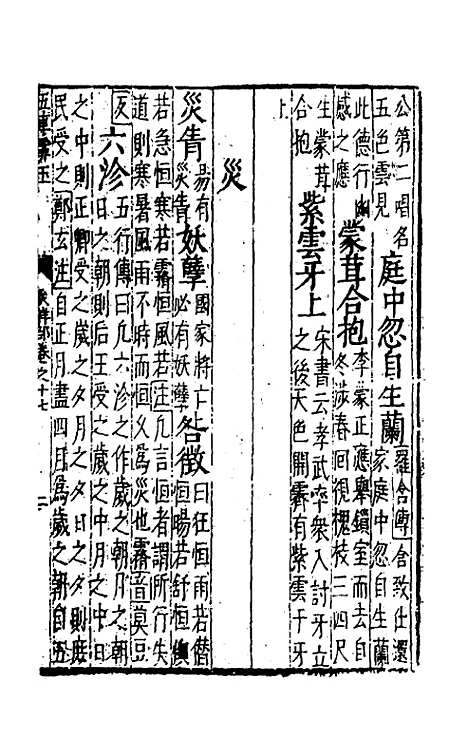 公第二唱名
五色雲見
庭中忽自生蘭
羅含傳含致仕還
家庭中忽自生蘭
此德行幽
感之應
蒙茸合抱
李蒙正應舉鎖室而去自
冬涉春回視槐枝三四尺
生蒙茸
合抱
紫雲牙上
宋書云孝武率衆入討牙立
之後天色開霽有紫雲于牙
上
災
災眚
易有
災眚
妖孽
國家將亡
必有妖孽
咎徵
曰狂恒雨若僭
恒暘若舒恒燠
若急恒寒若霿恒風若注凡言恒者謂所行失
道則寒暑風雨不時而恒久為災也霿音莫豆
反
六沴
五行傳曰凡六沴之作歲之朝月之朝
日之朝則后王受之歲之中月之中日
之中則正卿受之歲之夕月之夕日之夕則庶
民受之鄭玄注自正月盡四月為歲之朝自五
祥部卷之十七
二